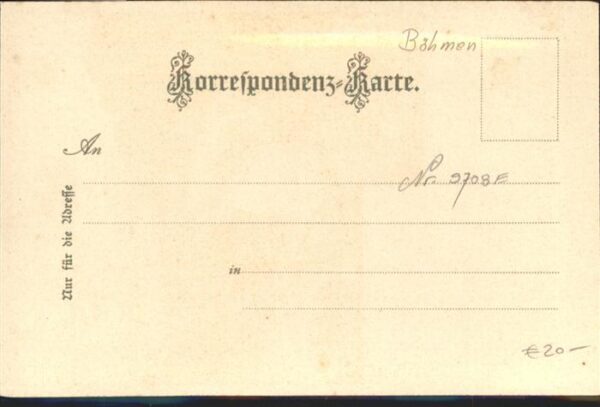 Böhmen
Korreſpondenz-Karte.
An
Nr. 9708F
Nur für die Adreſſe
in
€20-